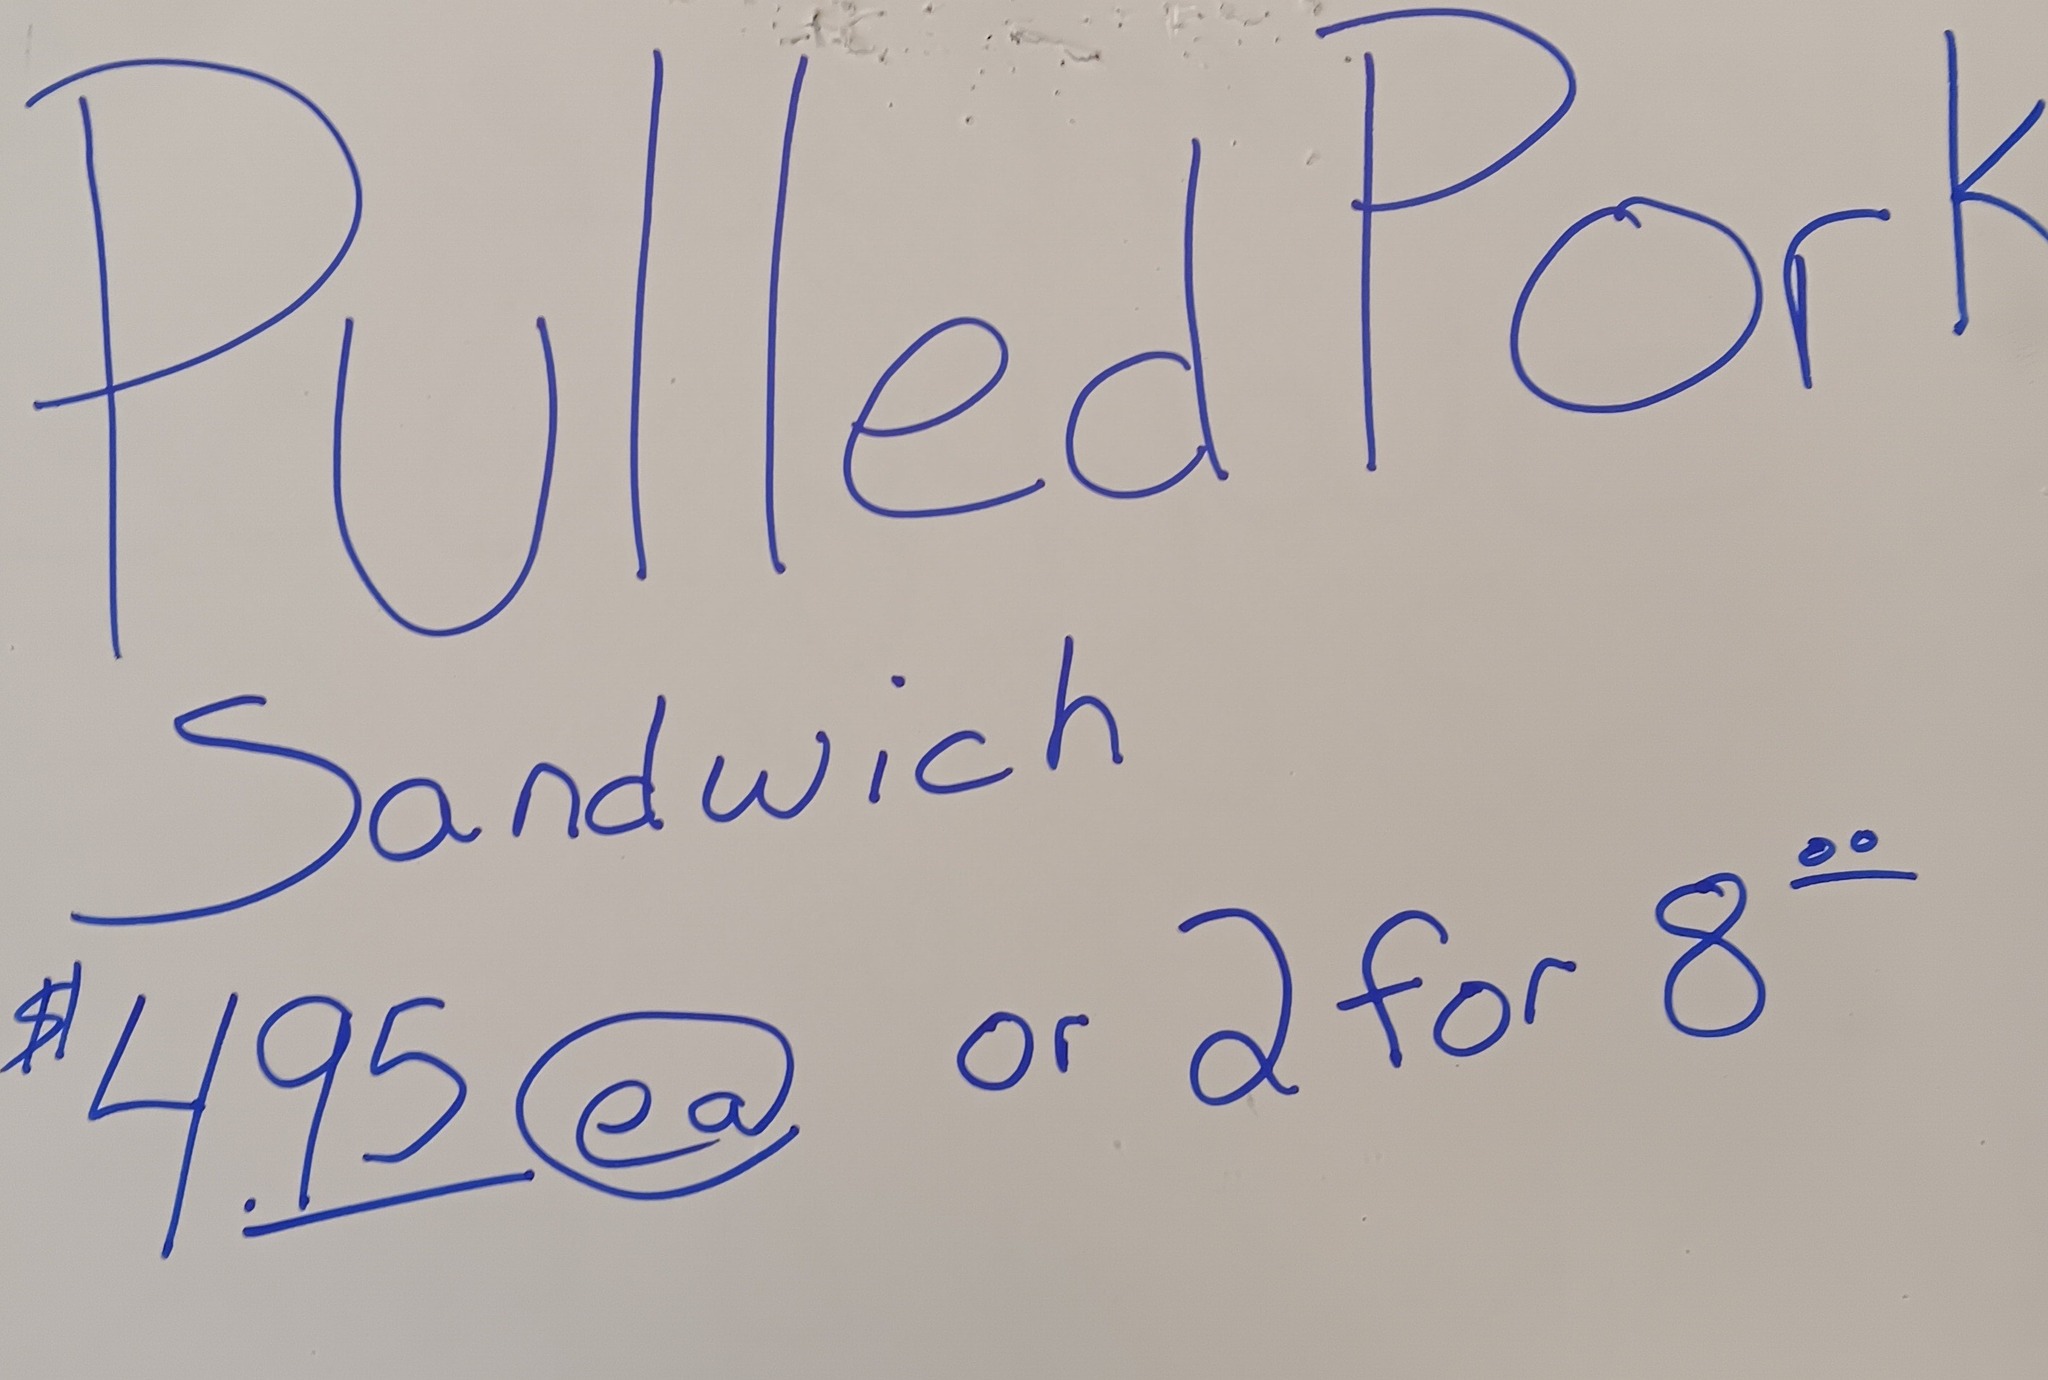 Pulled Pork
Sandwich
$4.95 ea or 2 for 8.00